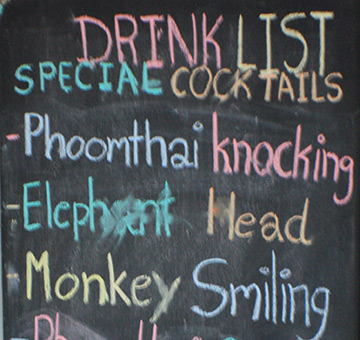 DRINK LIST
SPECIAL COCKTAILS
- Phoomthai knocking
- Elephant Head
- Monkey Smiling